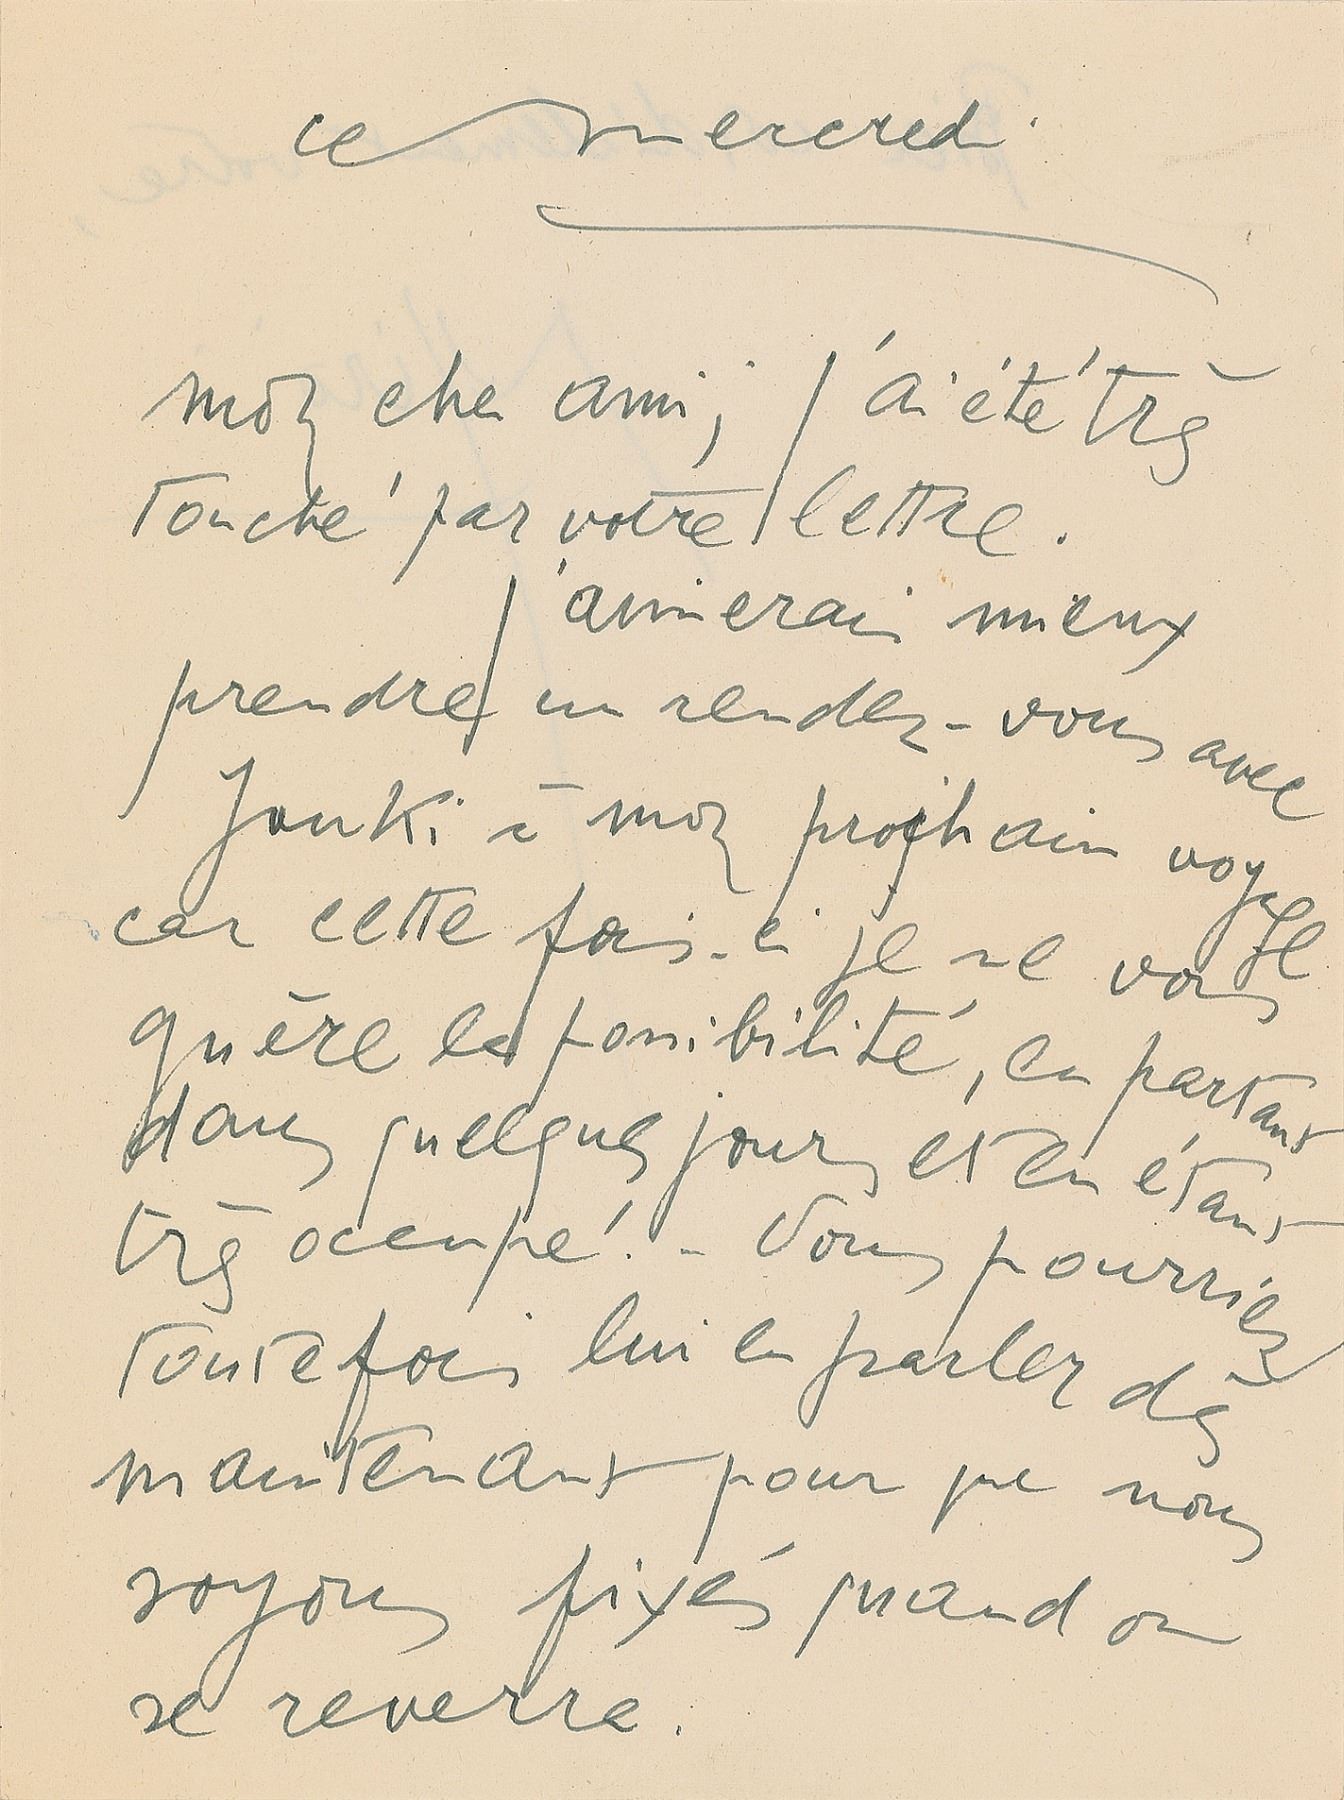 ce mercredi
mon cher ami, j'ai été très
touché par votre lettre.
j'aimerais mieux
prendre un rendez-vous avec
Jouki à mon prochain voyage
car cette fois-ci je ne vous
guère la possibilité, en partant
dans quelques jours et en étant
très occupé! - Vous pourriez
toutefois lui en parler dès
maintenant pour que nous
soyons fixés quand on
se reverra.